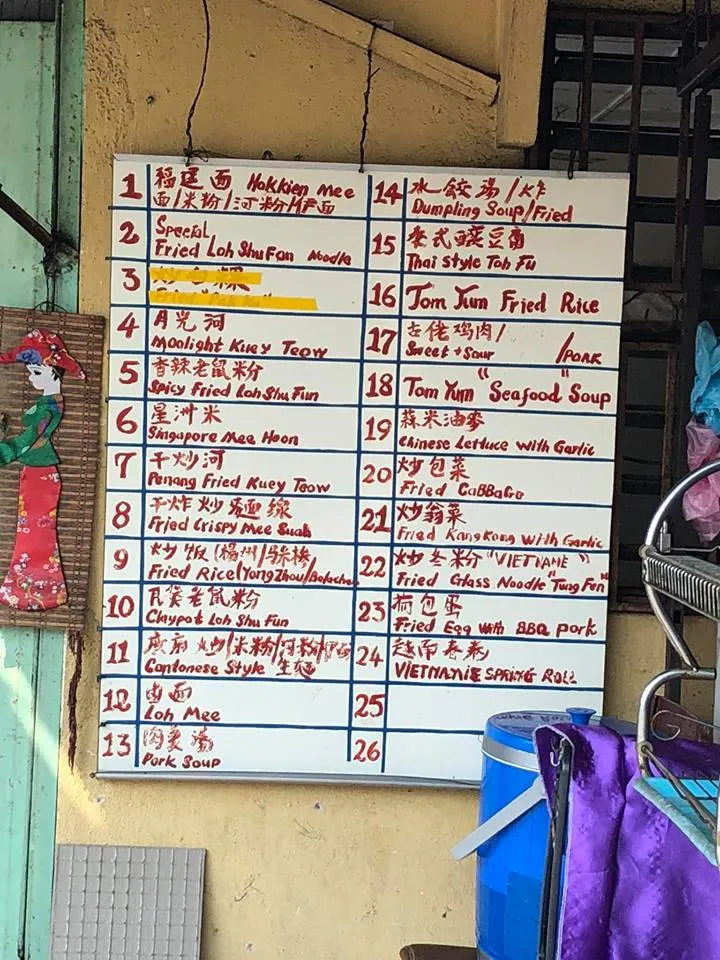 1 福建面 Hokkien mee
面/米粉/河粉/伊面
2 Special
Fried Loh Shu Fan Noodle
3
4 月光河
Moolight Kuey Teow
5 香辣老鼠粉
Spicy Fried Loh Shu Fun
6 星洲米
Singapore Mee Hoon
7 干炒河
Penang Fried Kuey Teow
8 干炸炒麺線
Fried Crispy Mee Suah
9 炒饭(楊州/
Fried Rice(YongZhou/Belachan
10 老鼠粉
Claypot Loh Shu Fun
11 炒/米粉/河粉/伊面
Cantonese Style 生麵
12 卤面
Loh Mee
13 湯
Pork Soup
14 水餃湯/炸
Dumpling Soup/Fried
15 泰式豆腐
Thai Style Toh Fu
16 Tom Yum Fried Rice
17 古佬鸡肉/
Sweet + Sour /PORK
18 Tom Yum "Seafood" Soup
19 蒜米油麥
Chinese Lettuce with Garlic
20 炒包菜
Fried CaBBaGe
21 炒翁菜
Fried Kangkong with Garlic
22 炒冬粉 "VIETNAME"
Fried Glass Noodle "Tung Fun"
23 荷包蛋
Fried Egg with BBQ pork
24 越南春卷
VIETNAMIE SPRING ROLL
25
26